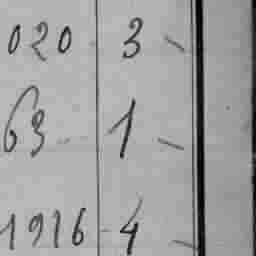 020 3 -
63 1 -
1916 4 -